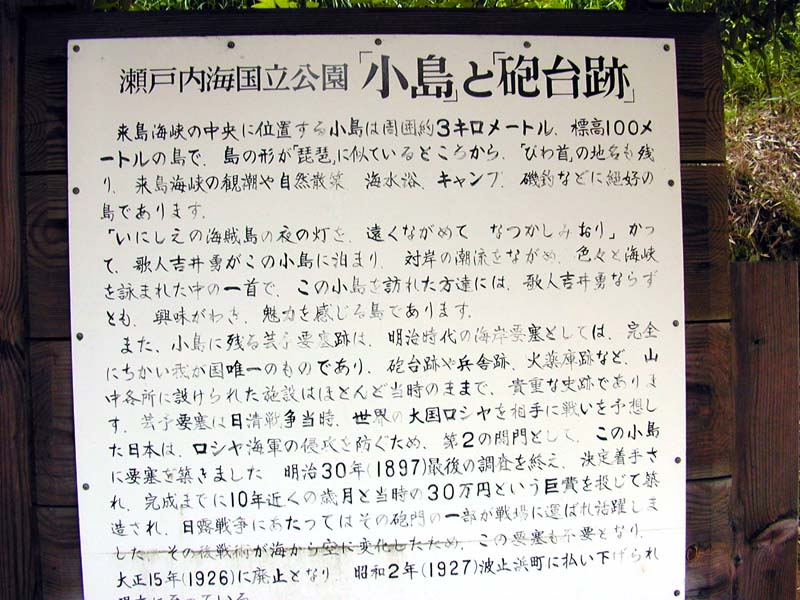 瀬戸内海国立公園「小島」と「砲台跡」
来島海峡の中央に位置する小島は周囲約3キロメートル、標高100メ
ートルの島で、島の形が「琵琶」に似ているところから、「びわ首」の地名も残
り、来島海峡の観潮や自然散策、海水浴、キャンプ、磯釣などに絶好の
島であります。
「いにしえの海賊島の夜の灯を、遠くながめて なつかしみおり」かつ
て、歌人吉井勇がこの小島に泊まり、対岸の潮流をながめ、色々と海峡
を詠まれた中の一首で、この小島を訪れた方達には、歌人吉井勇ならず
とも、興味がわき、魅力を感じる島であります。
また、小島に残る芸予要塞跡は、明治時代の海岸要塞としては、完全
にちかい我が国唯一のものであり、砲台跡や兵舎跡、火薬庫跡など、山
中各所に設けられた施設はほとんど当時のままで、貴重な史跡でありま
す。芸予要塞は日清戦争当時、世界の大国ロシヤを相手に戦いを予想し
た日本は、ロシヤ海軍の侵攻を防ぐため、第2の関門として、この小島
に要塞を築きました 明治30年(1897)最後の調査を終え、決定着手さ
れ、完成までに10年近くの歳月と当時の30万円という巨費を投じて築
造され、日露戦争にあたってはその砲門の一部が戦場に運ばれ活躍しま
した。その後戦術が海から空に変化したため、この要塞も不要となり、
大正15年(1926)に廃止となり、昭和2年(1927)波止浜町に払い下げられ